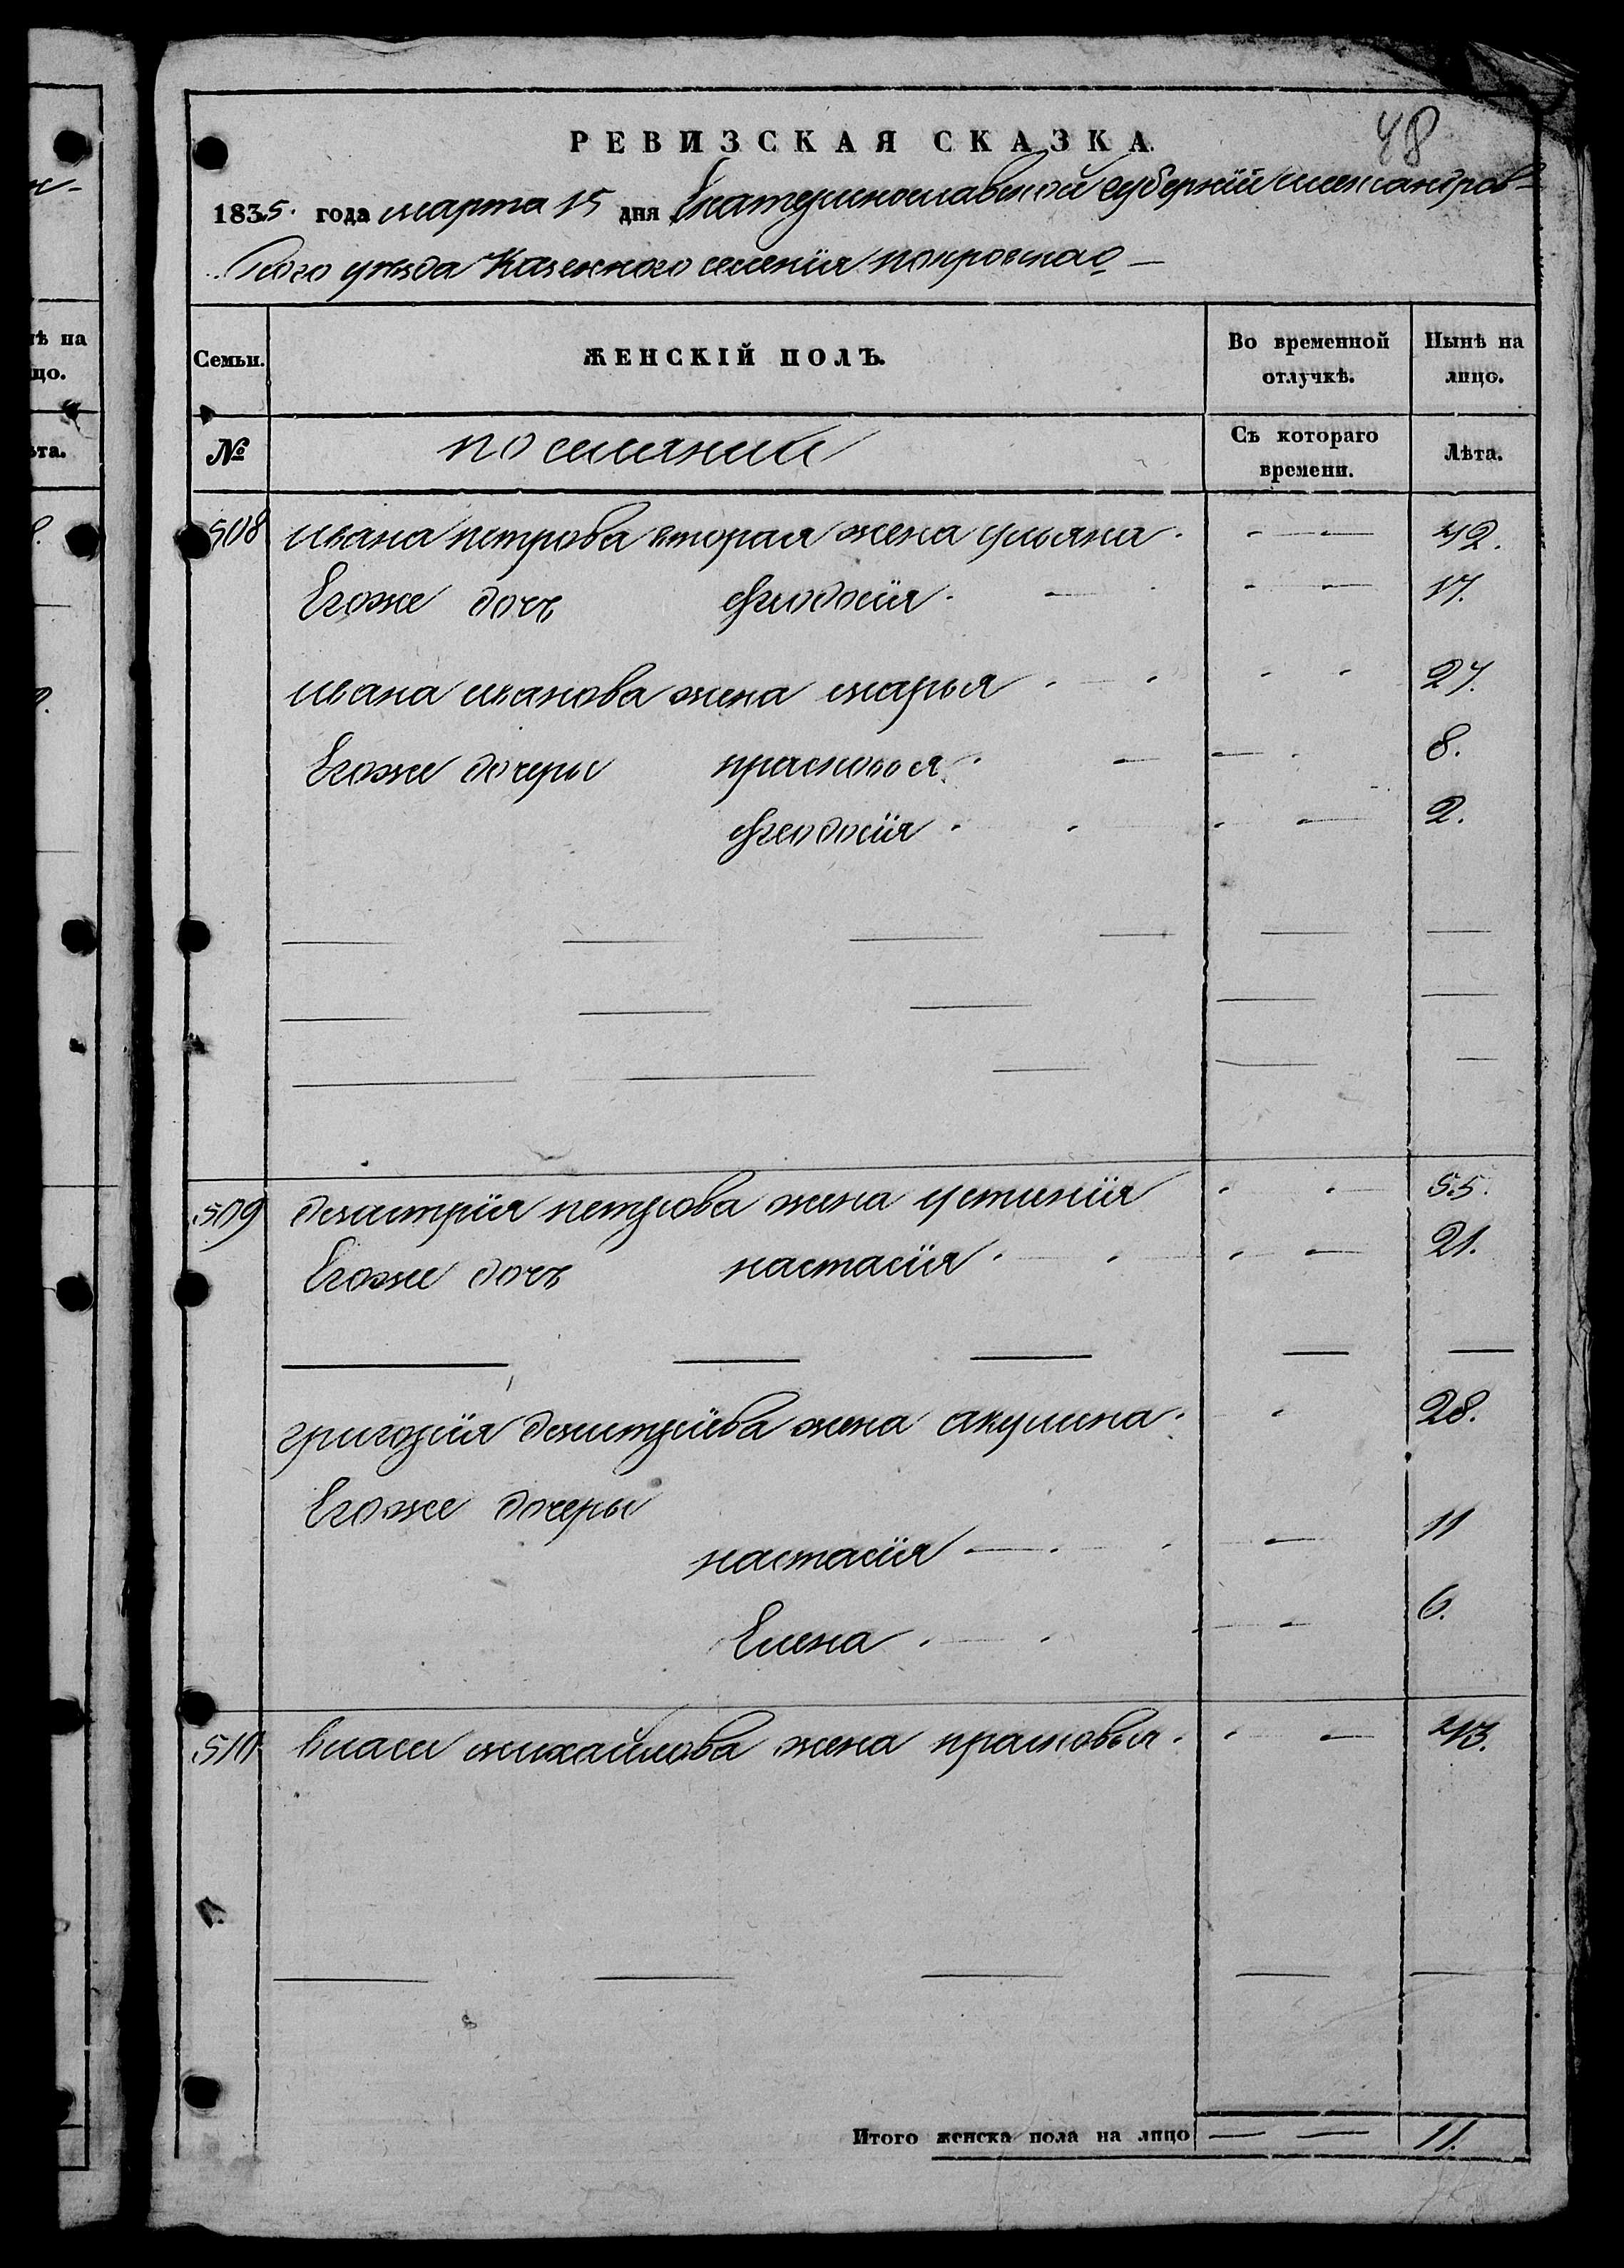 48
РЕВИЗСКАЯ СКАЗКА.
1835. года марта 15 дня Екатеринославской губернїи александров-
Ского уезда Казенного селенїя покровскаго
Семьи.
ЖЕНСКІЙ ПОЛЪ.
Во временной отлучкѣ.
Нынѣ на лицо.
№
поселянки
Съ котораго времени.
Лѣта.
508 ивана петрова вторая жена ульяна. 42.
Егоже дочь феодосїя. 17.
ивана иванова жена марья 27.
Егоже дочеры прасковья. 8.
феодосїя 2.
509 дмитрїя петрова жена устинїя 55.
Егоже дочь настасїя. 21.
григорїя дмитрїева жена акулина. 28.
Егоже дочеры
настасїя 11
Елена 6.
510 власа михайлова жена прасковья. 43.
Итого женска пола на лицо 11.
нѣ на
цо.
ѣта.